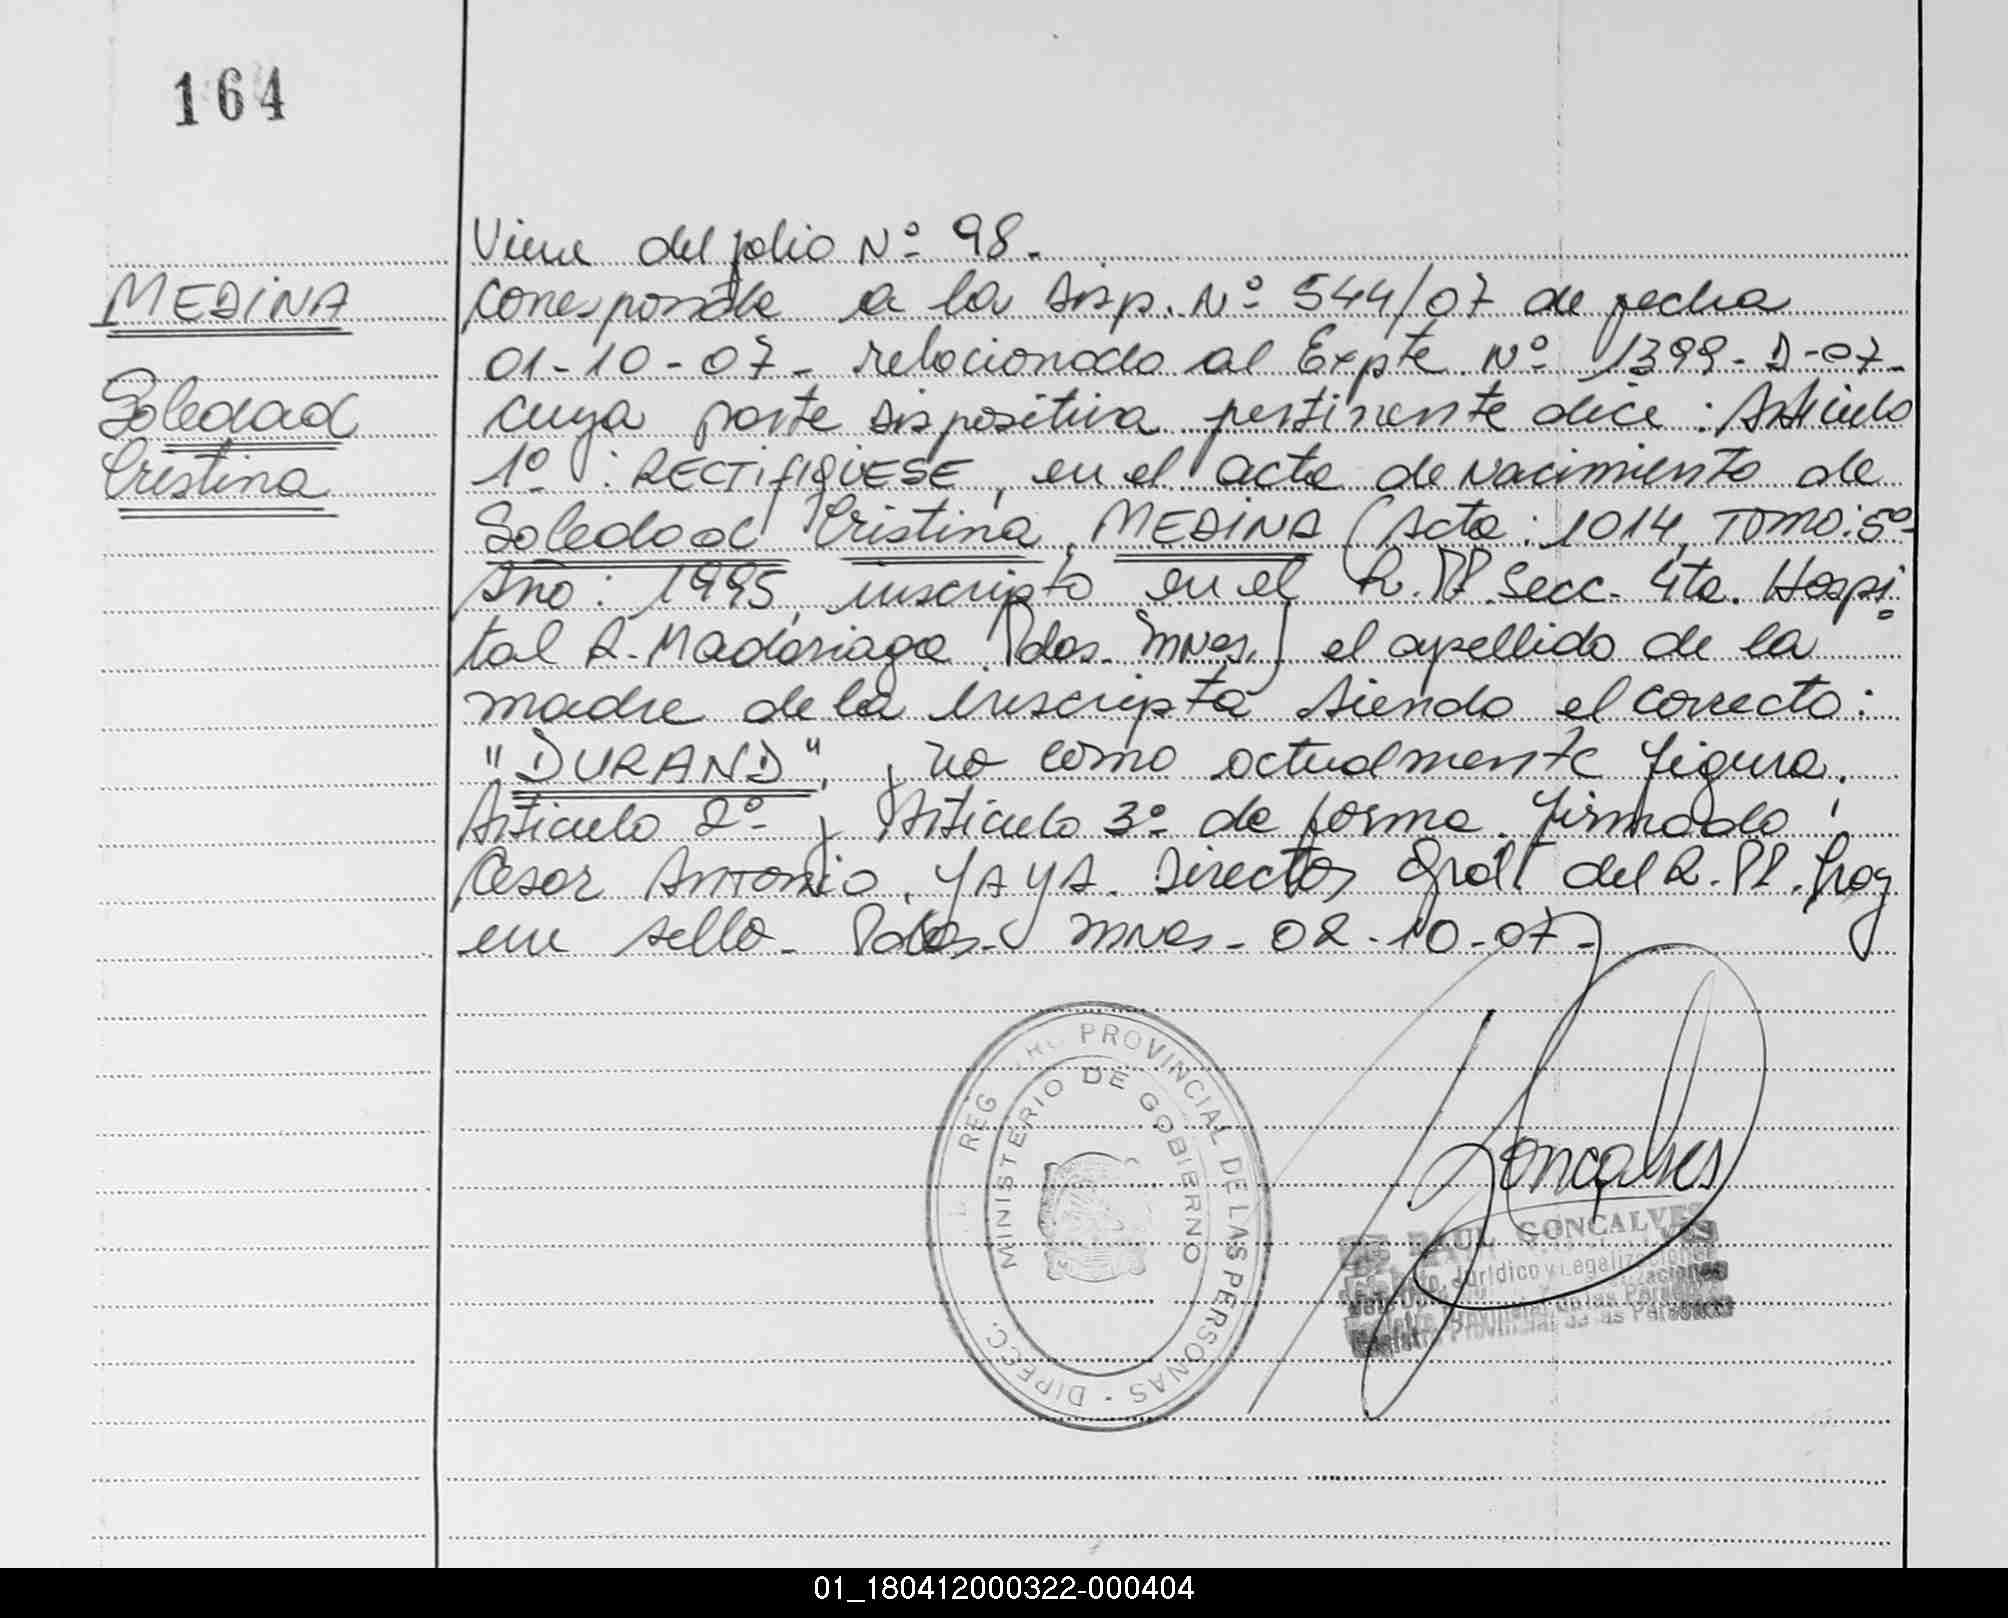 164
Viene del folio Nº 98.
MEDINA
corresponde a la Disp. Nº 544/07 de fecha
01-10-07- relacionado al Expte Nº 1399-D-07-
Soledad
cuya parte dispositiva pertinente dice: Artículo
Cristina
1º: RECTIFIQUESE, en el acta de nacimiento de
Soledad Cristina MEDINA (Acta: 1014, TOMO: 5º-
Año: 1995, inscripto en el R.PP. Secc. 4ta. Hospi
tal R. Madariaga Pdas. Mnes.) el apellido de la
madre de la inscripta siendo el correcto:
"DURAND", y no como actualmente figura.
Artículo 2º y Artículo 3º de forma. Firmado:
Cesar Antonio YAYA. Director Gral del R.PP. Hay
un sello- Pdas- Mnes- 02-10-07-
REG RO PROVINCIAL DE LAS PERSONAS - DIPECC.
MINISTERIO DE GOBIERNO
Goncalves
RAUL GONCALVES
Jurídico y Legalizaciones
Registro Provincial de las Personas
01_180412000322-000404